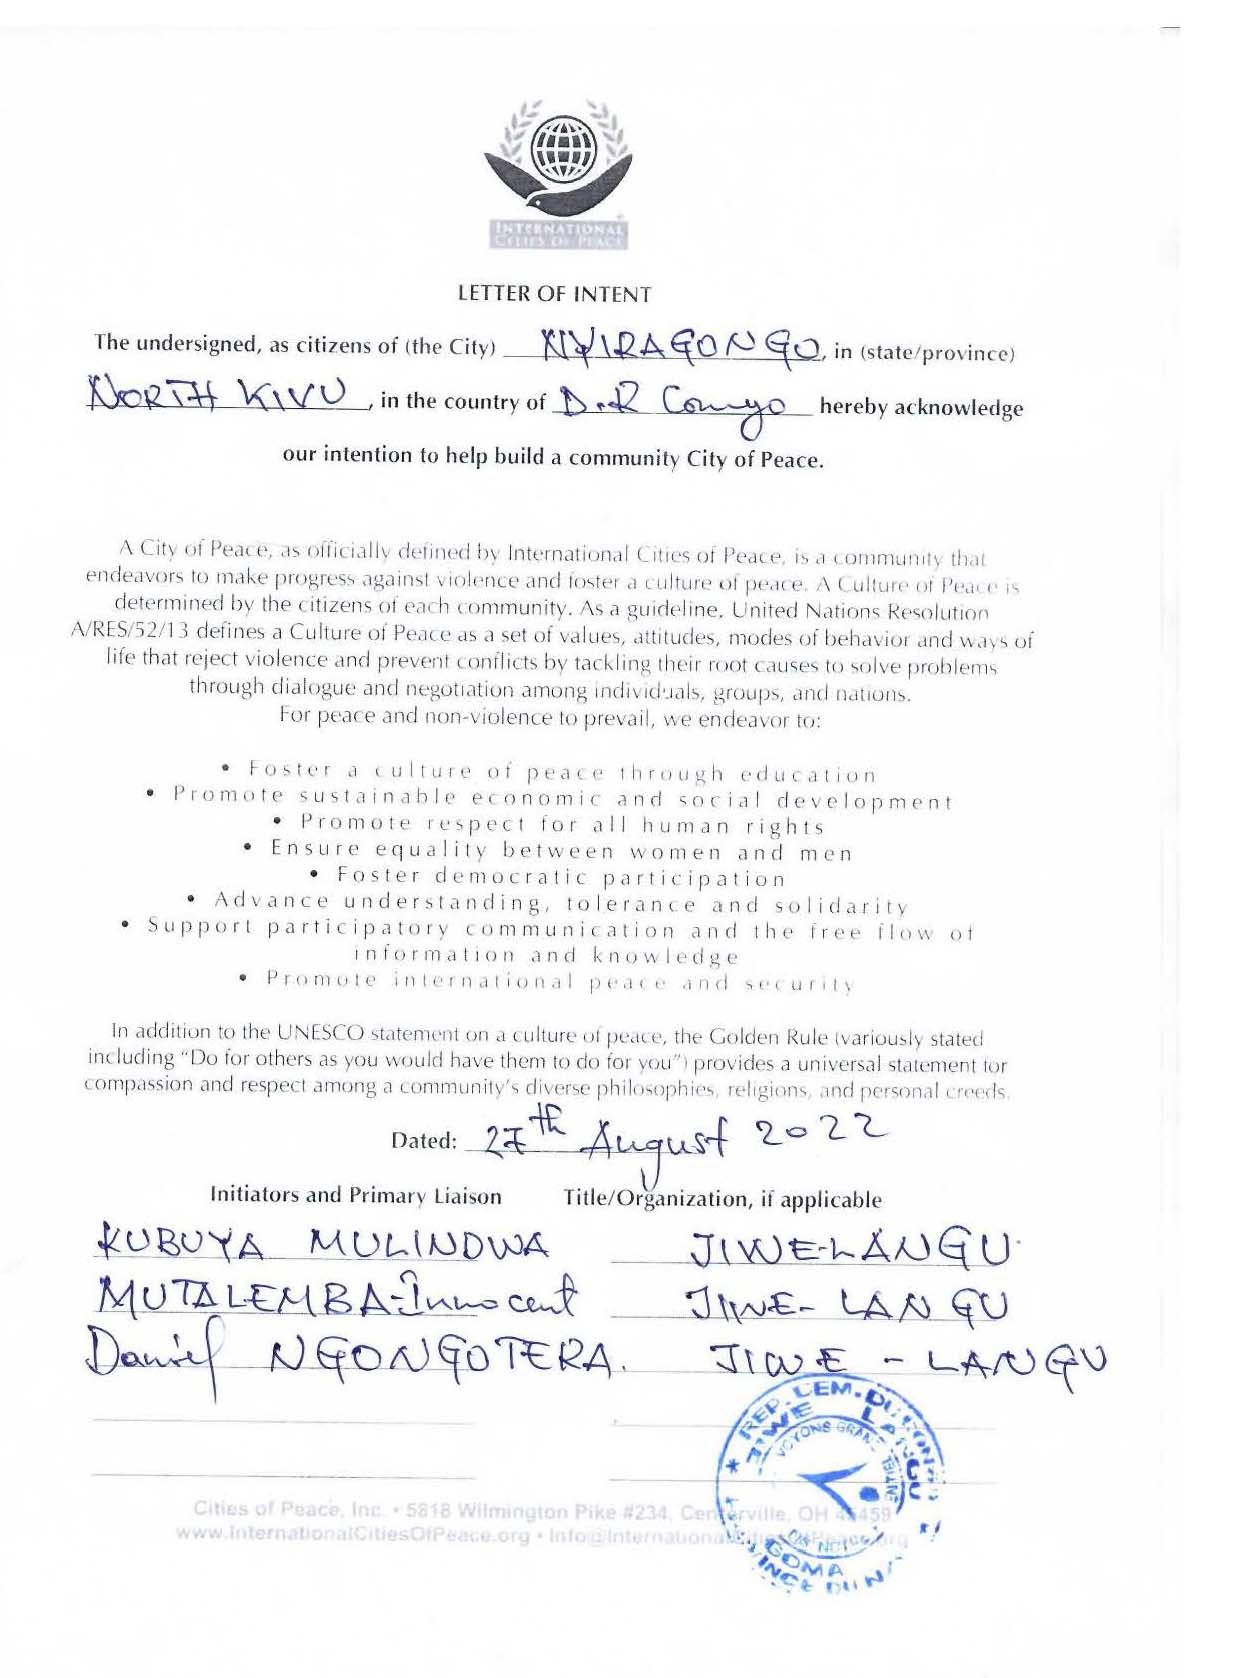 INTERNATIONAL
CITIES OF PEACE
LETTER OF INTENT
The undersigned, as citizens of (the City) NYIRAGONGO, in (state/province)
NORTH KIVU, in the country of D.R Congo hereby acknowledge
our intention to help build a community City of Peace.
A City of Peace, as officially defined by International Cities of Peace, is a community that
endeavors to make progress against violence and foster a culture of peace. A Culture of Peace is
determined by the citizens of each community. As a guideline, United Nations Resolution
A/RES/52/13 defines a Culture of Peace as a set of values, attitudes, modes of behavior and ways of
life that reject violence and prevent conflicts by tackling their root causes to solve problems
through dialogue and negotiation among individuals, groups, and nations.
For peace and non-violence to prevail, we endeavor to:
• Foster a culture of peace through education
• Promote sustainable economic and social development
• Promote respect for all human rights
• Ensure equality between women and men
• Foster democratic participation
• Advance understanding, tolerance and solidarity
• Support participatory communication and the free flow of
information and knowledge
• Promote international peace and security
In addition to the UNESCO statement on a culture of peace, the Golden Rule (variously stated
including "Do for others as you would have them to do for you") provides a universal statement for
compassion and respect among a community's diverse philosophies, religions, and personal creeds.
Dated: 27th August 2022
Initiators and Primary Liaison Title/Organization, if applicable
KUBUYA MULINDWA JIWE-LANGU
MUTALEMBA-Innocent JIWE-LANGU
Daniel NGONGOTERA. JIWE-LANGU
REP. DEM. DU CONGO
JIWE LANGU
VOYONS GRAND
GOMA
Cities of Peace, Inc. • 5818 Wilmington Pike #234, Centerville, OH 45459
www.InternationalCitiesOfPeace.org • Info@InternationalCitiesOfPeace.org